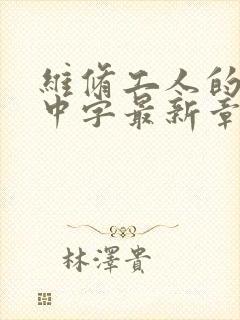 維脩工人的
中字最新章
林澤貴